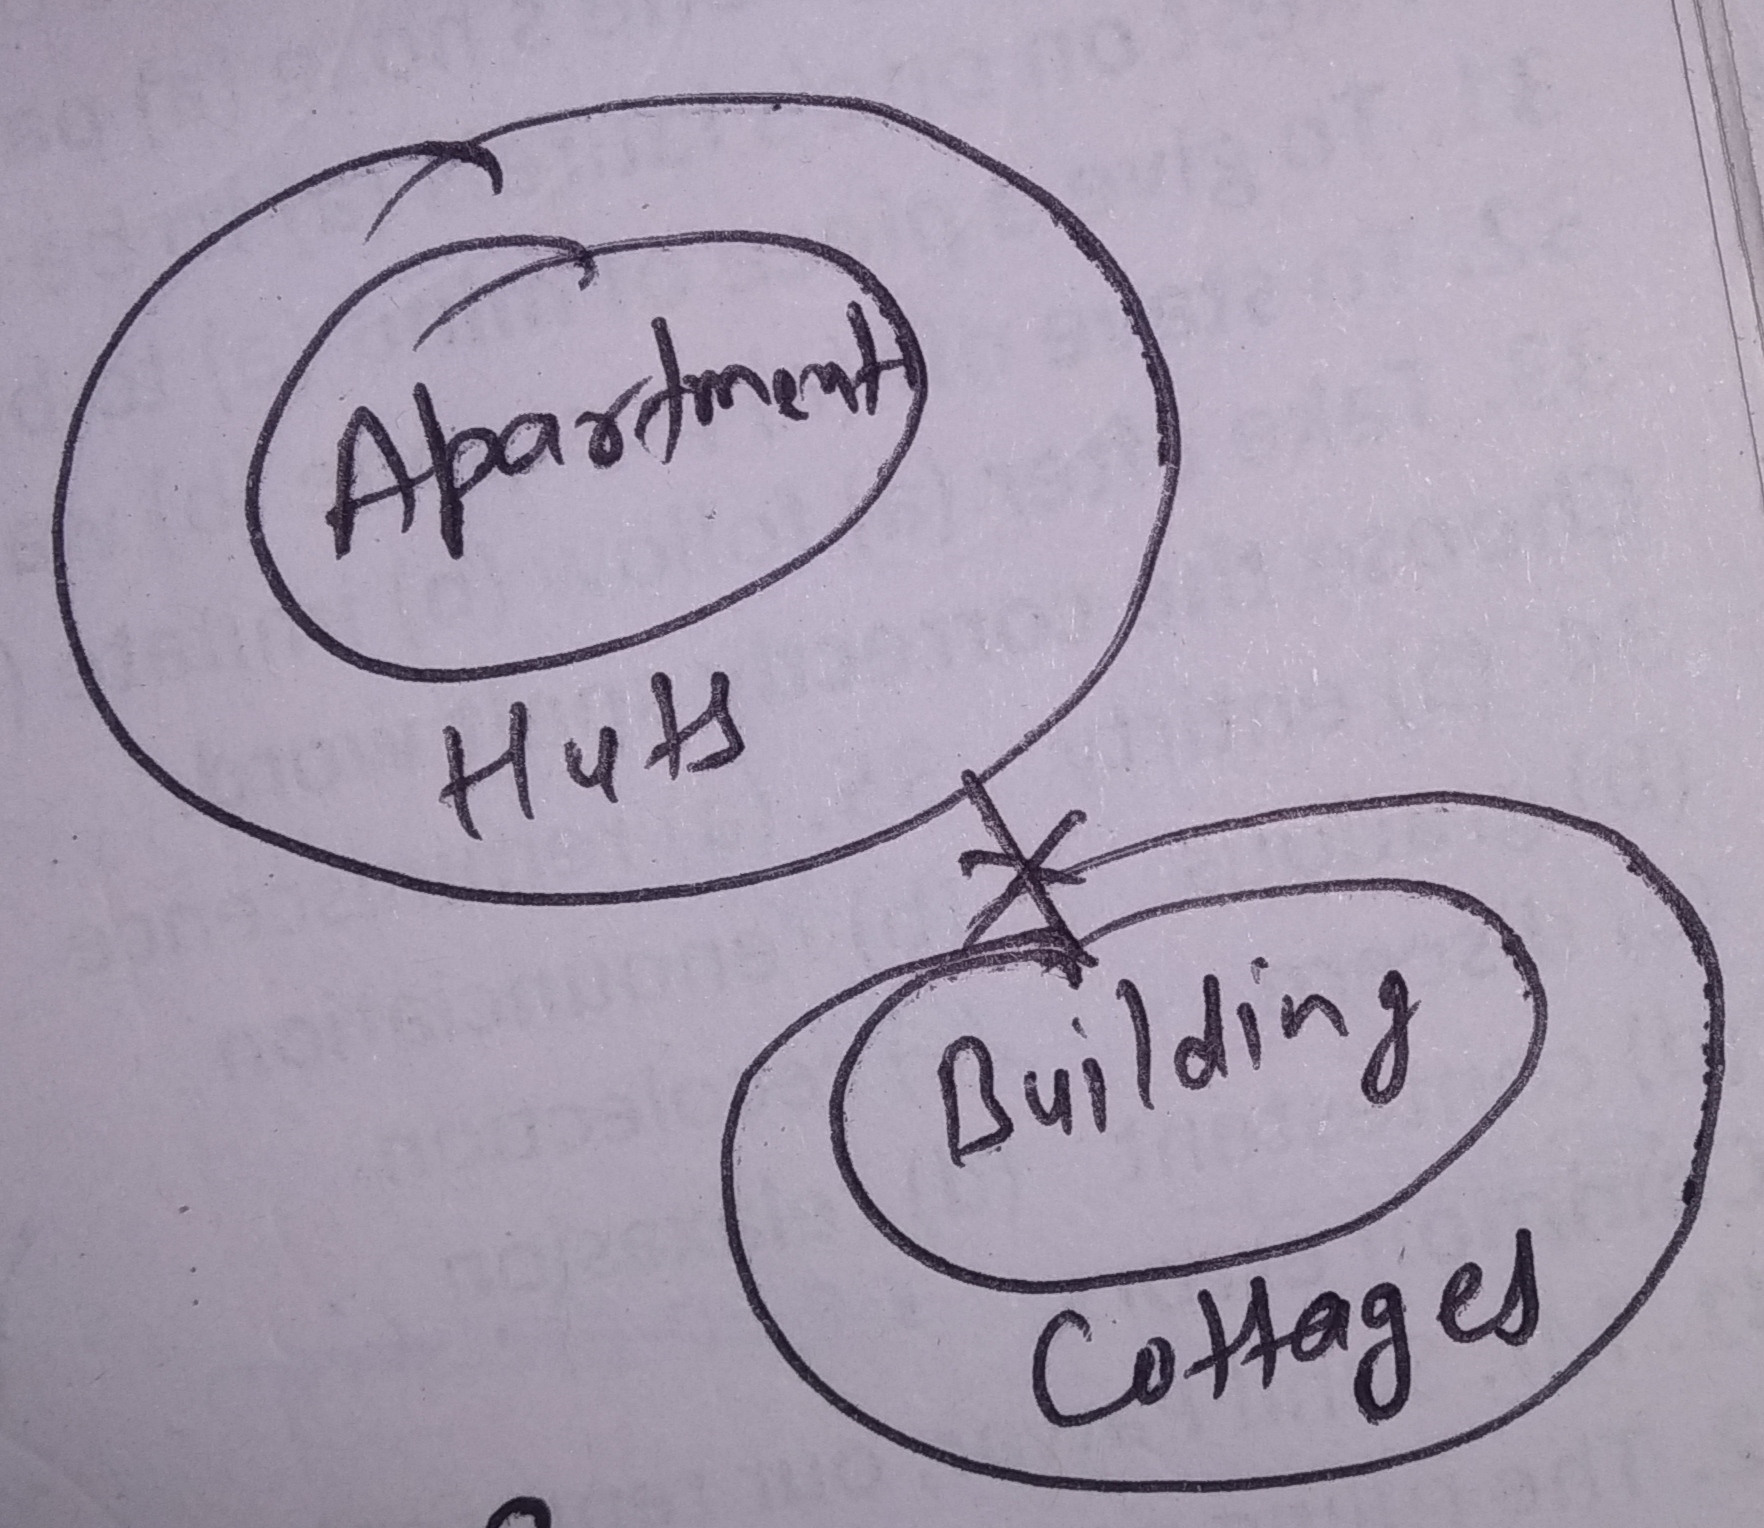 Apartment
Huts
Building
Cottages